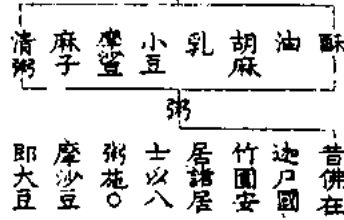 酥
油
胡麻
乳
小豆
摩
麻子
清粥
粥
昔佛在
迦尸國
竹園安
居諸居
士以八
粥施。
摩沙豆
即大豆